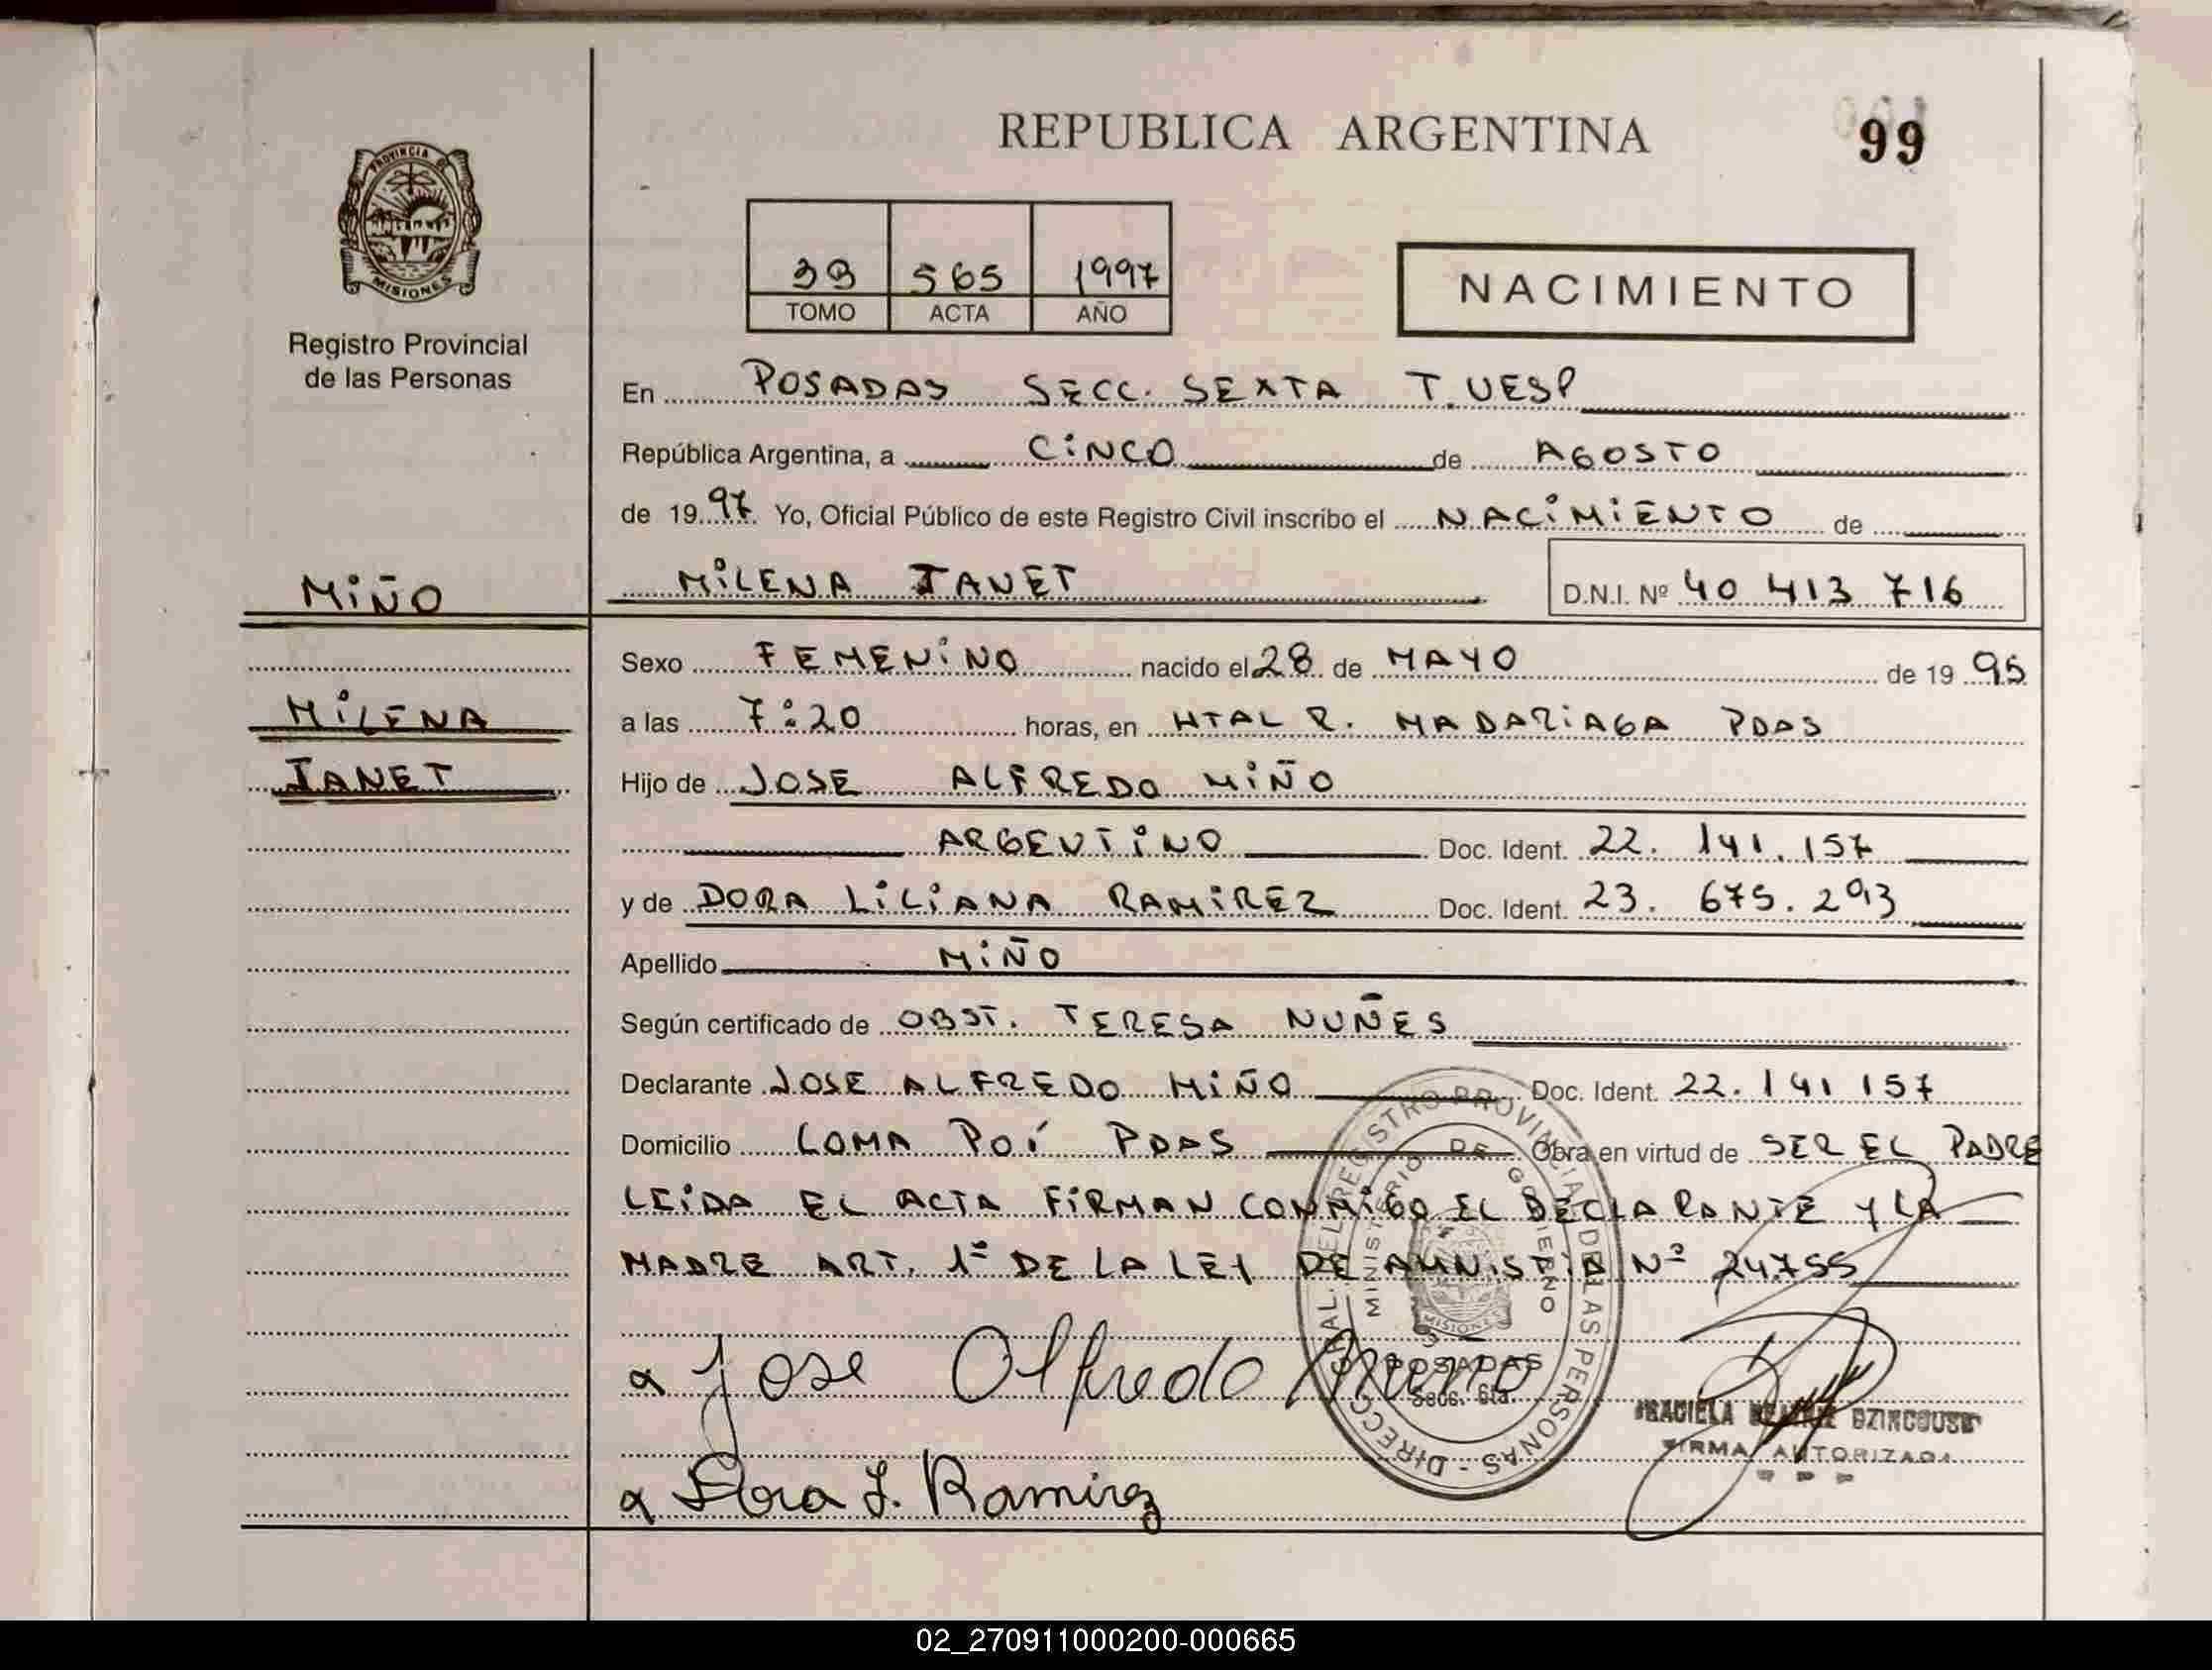 REPUBLICA ARGENTINA
99
PROVINCIA DE
MISIONES
Registro Provincial
de las Personas
565 1997
TOMO ACTA AÑO
NACIMIENTO
En POSADAS SECC. SEXTA T.VESP
República Argentina, a CINCO de AGOSTO
de 1997. Yo, Oficial Público de este Registro Civil inscribo el NACIMIENTO de
MIÑO
MILENA JANET D.N.I. Nº 40 413 716
Sexo FEMENINO nacido el 28 de MAYO de 1995
MILENA
a las 7:20 horas, en HTAL R. MADARIAGA PDAS
JANET
Hijo de JOSE ALFREDO MIÑO
ARGENTINO Doc. Ident. 22.141.157
y de DORA LILIANA RAMIREZ Doc. Ident. 23.675.293
Apellido MIÑO
Según certificado de OBST. TERESA NUÑES
Declarante JOSE ALFREDO MIÑO Doc. Ident. 22.141 157
Domicilio LOMA POÍ PDAS Obra en virtud de SER EL PADRE
LEIDA EL ACTA FIRMAN CONMIGO EL DECLARANTE Y LA
MADRE ART. 1º DE LA LEY DE AMNISTÍA Nº 24755
Jose Alfredo Miño
Dora L. Ramirez
DIRECC. GRAL. DEL REGISTRO PROVINCIAL DE LAS PERSONAS
MINISTERIO DE GOBIERNO
MISIONES
POSADAS
Secc. 6ta.
FIRMA AUTORIZADA
02_270911000200-000665